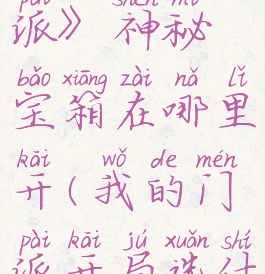 pài shén mì
派》 神秘
bǎo xiāng zài nǎ lǐ
宝箱在哪里
kāi wǒ de mén
开(我的门
pài kāi jú xuǎn shí
派开局选什